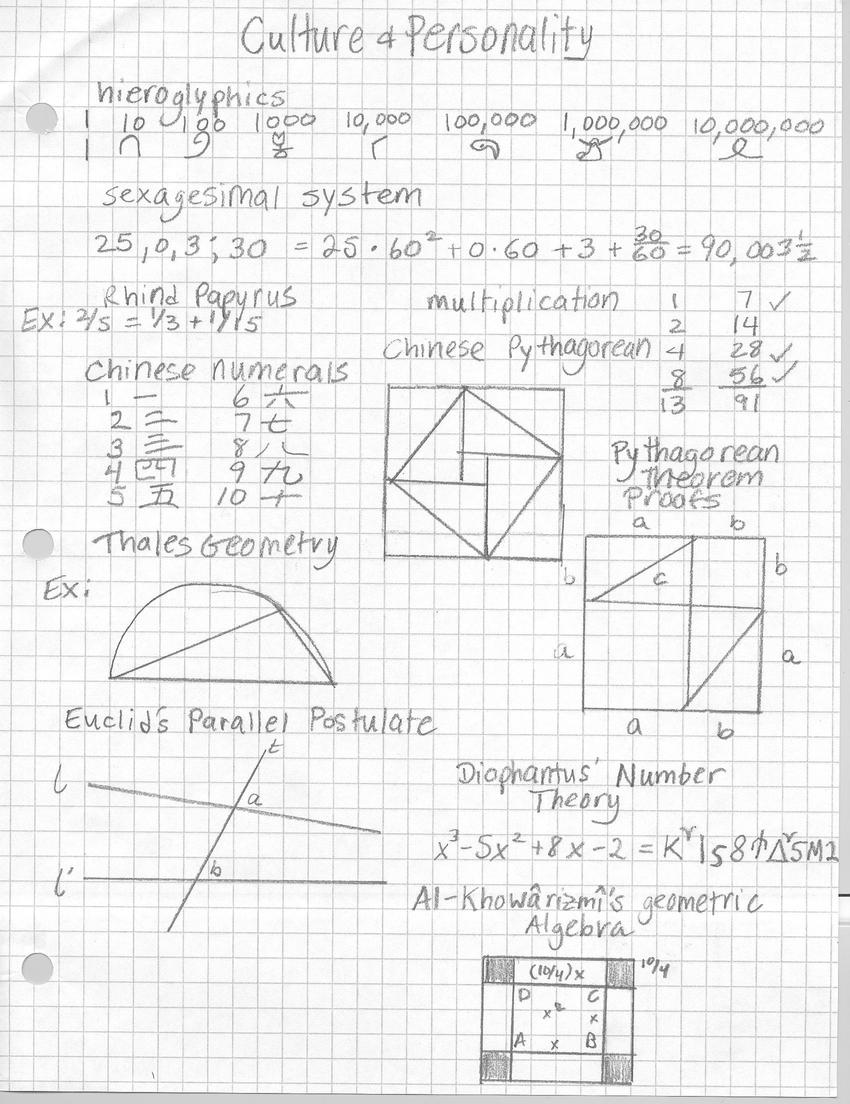 Culture & Personality
hieroglyphics
1 10 100 1000 10,000 100,000 1,000,000 10,000,000
sexagesimal system
25,0,3;30 = 25·60² + 0·60 + 3 + 30/60 = 90,003 1/2
Rhind Papyrus
Ex: 2/5 = 1/3 + 1/15
multiplication
1 7 ✓
2 14
4 28 ✓
8 56 ✓
13 91
Chinese Pythagorean
Chinese numerals
1 一 6 六
2 二 7 七
3 三 8 八
4 四 9 九
5 五 10 十
Pythagorean
Theorem
Proofs
a b
b c b
a a
a b
Thales Geometry
Ex:
Euclid's Parallel Postulate
t
l a
l' b
Diophantus' Number
Theory
x³-5x²+8x-2 =
Al-Khowârizmî's geometric
Algebra
(10/4)x 10/4
D C
x² x
A x B